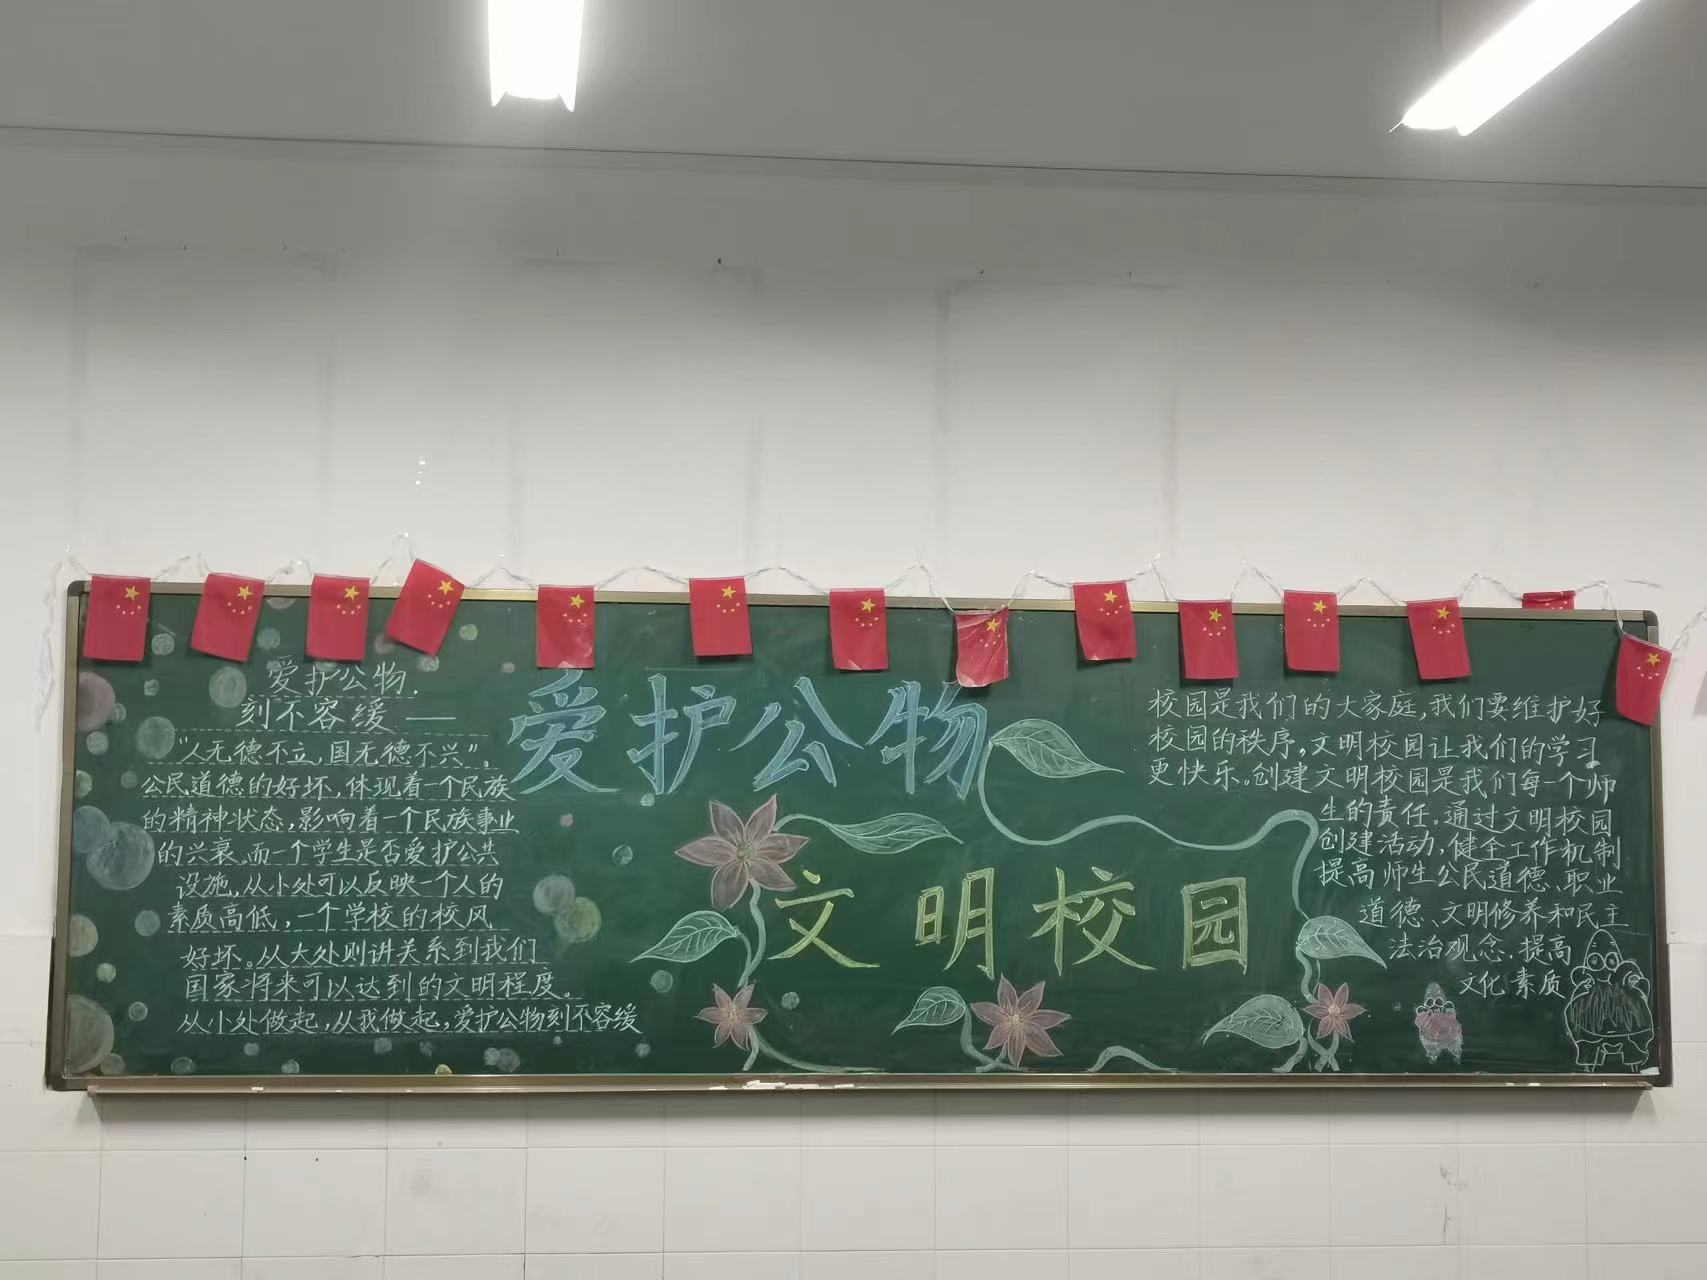 爱护公物.
刻不容缓——
“人无德不立,国无德不兴”。
公民道德的好坏,体现着一个民族
的精神状态,影响着一个民族事业
的兴衰.而一个学生是否爱护公共
设施,从小处可以反映一个人的
素质高低,一个学校的校风
好坏。从大处则讲关系到我们
国家将来可以达到的文明程度。
从小处做起,从我做起,爱护公物刻不容缓
爱护公物
文明校园
校园是我们的大家庭,我们要维护好
校园的秩序,文明校园让我们的学习
更快乐。创建文明校园是我们每一个师
生的责任,通过文明校园
创建活动,健全工作机制
提高师生公民道德、职业
道德、文明修养和民主
法治观念,提高
文化素质